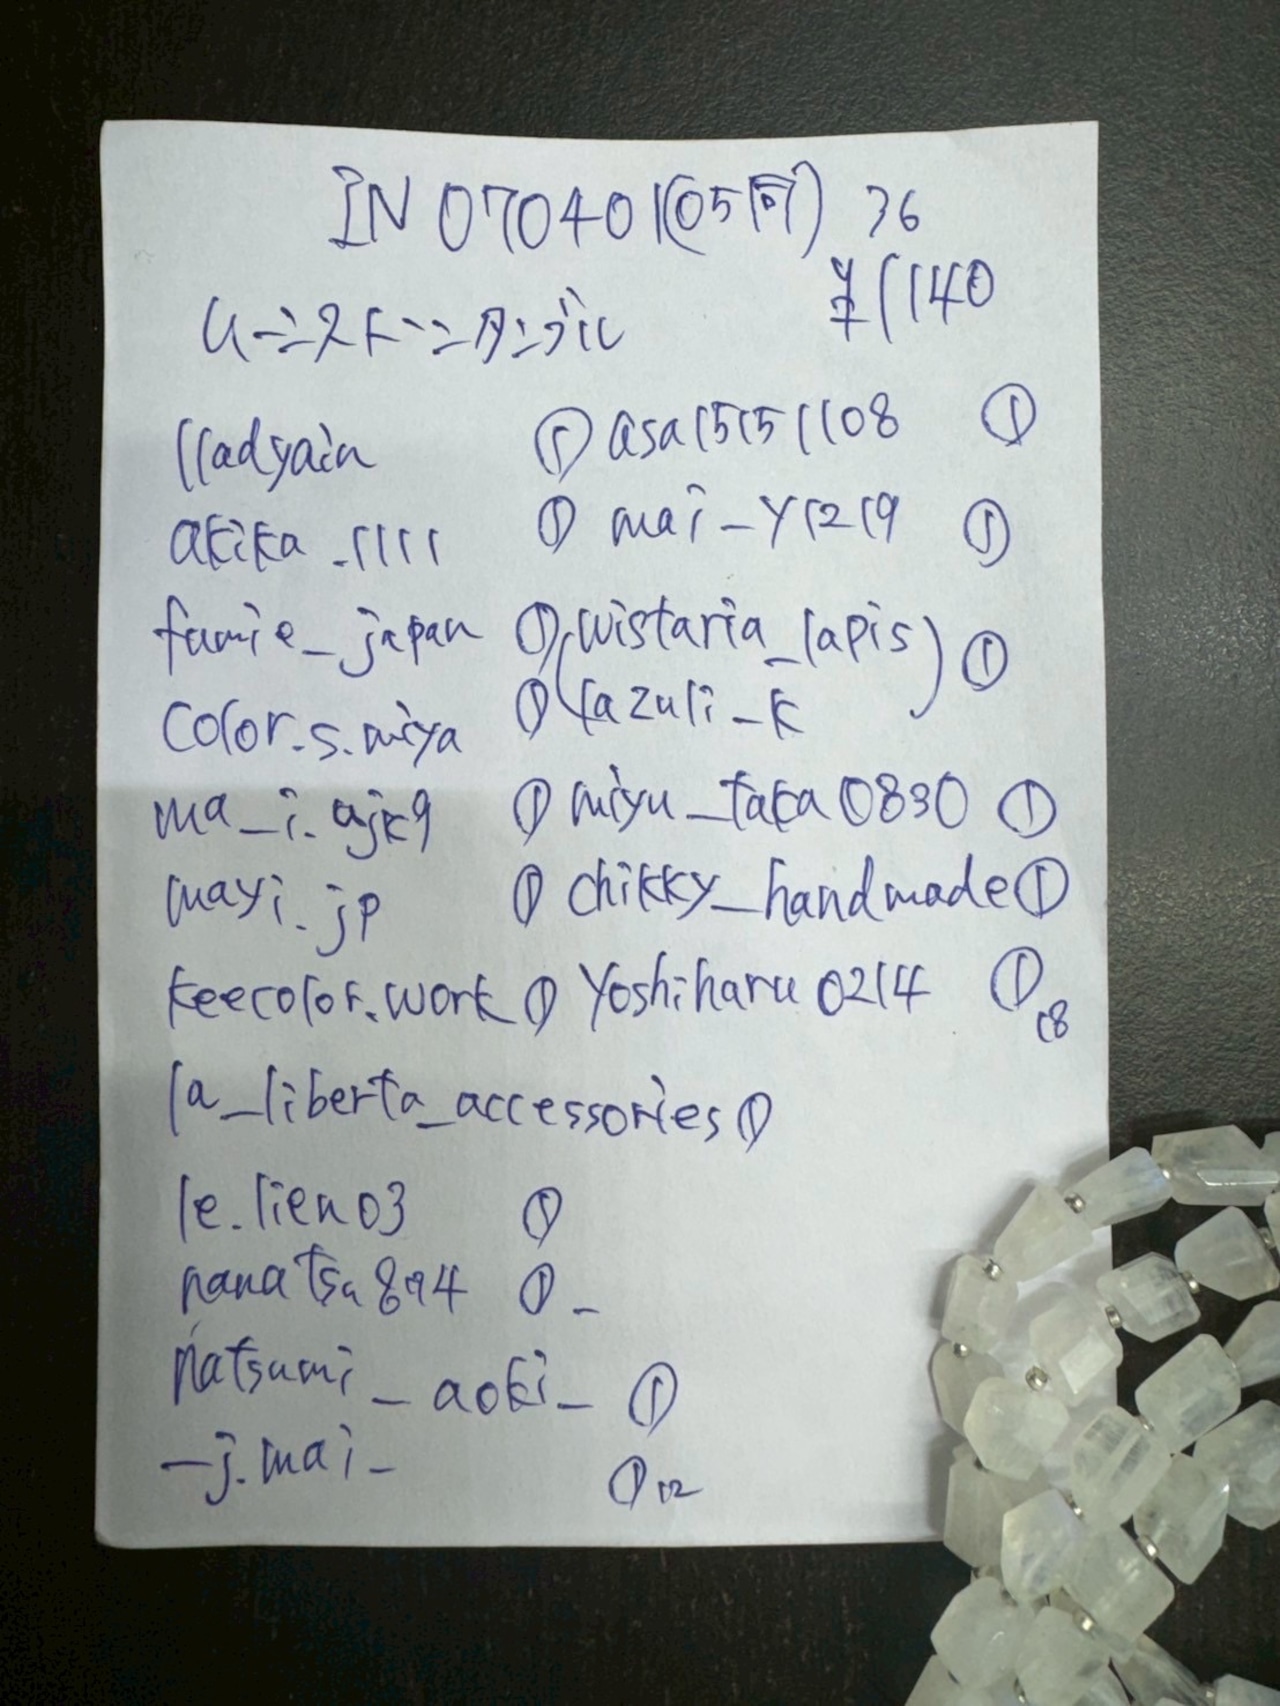 IN070401(05可) 36
ムーンストーンタンブル ¥1140
lladyain ①
akika_1111 ①
fumie_japan ①
color.s.miya ①
ma_i.ajk9 ①
mayi.jp ①
keecolor.work ①
la_liberta_accessories ①
le.lien03 ①
①_
natsumi_aoki_ ①
_j.mai_ ① 12
asa15151108 ①
mai_y1219 ①
(wistaria_lapis
lazuli_k) ①
miyu_taka0830 ①
chikky_handmade ①
Yoshiharu0214 ① 18